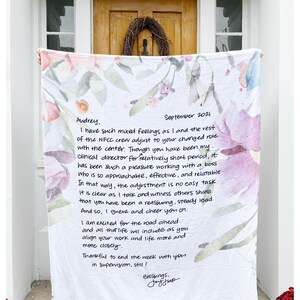 September 2021
Audrey,
I have such mixed feelings as I and the rest
of the HFCC crew adjust to your changed role
with the center. Though you have been my
clinical director for relatively short period, it
has been such a pleasure working with a boss
who is so approachable, effective, and relatable
In that way, the adjustment is no easy task
it is clear as I talk and witness others share
that you have been a reassuring, steady lead
And so, I grieve and cheer you on.
I am excited for the road ahead
and all this life will include as you
align your work and life more and
more closely.
Thankful to end the week with you
in supervision, still!
Blessings,